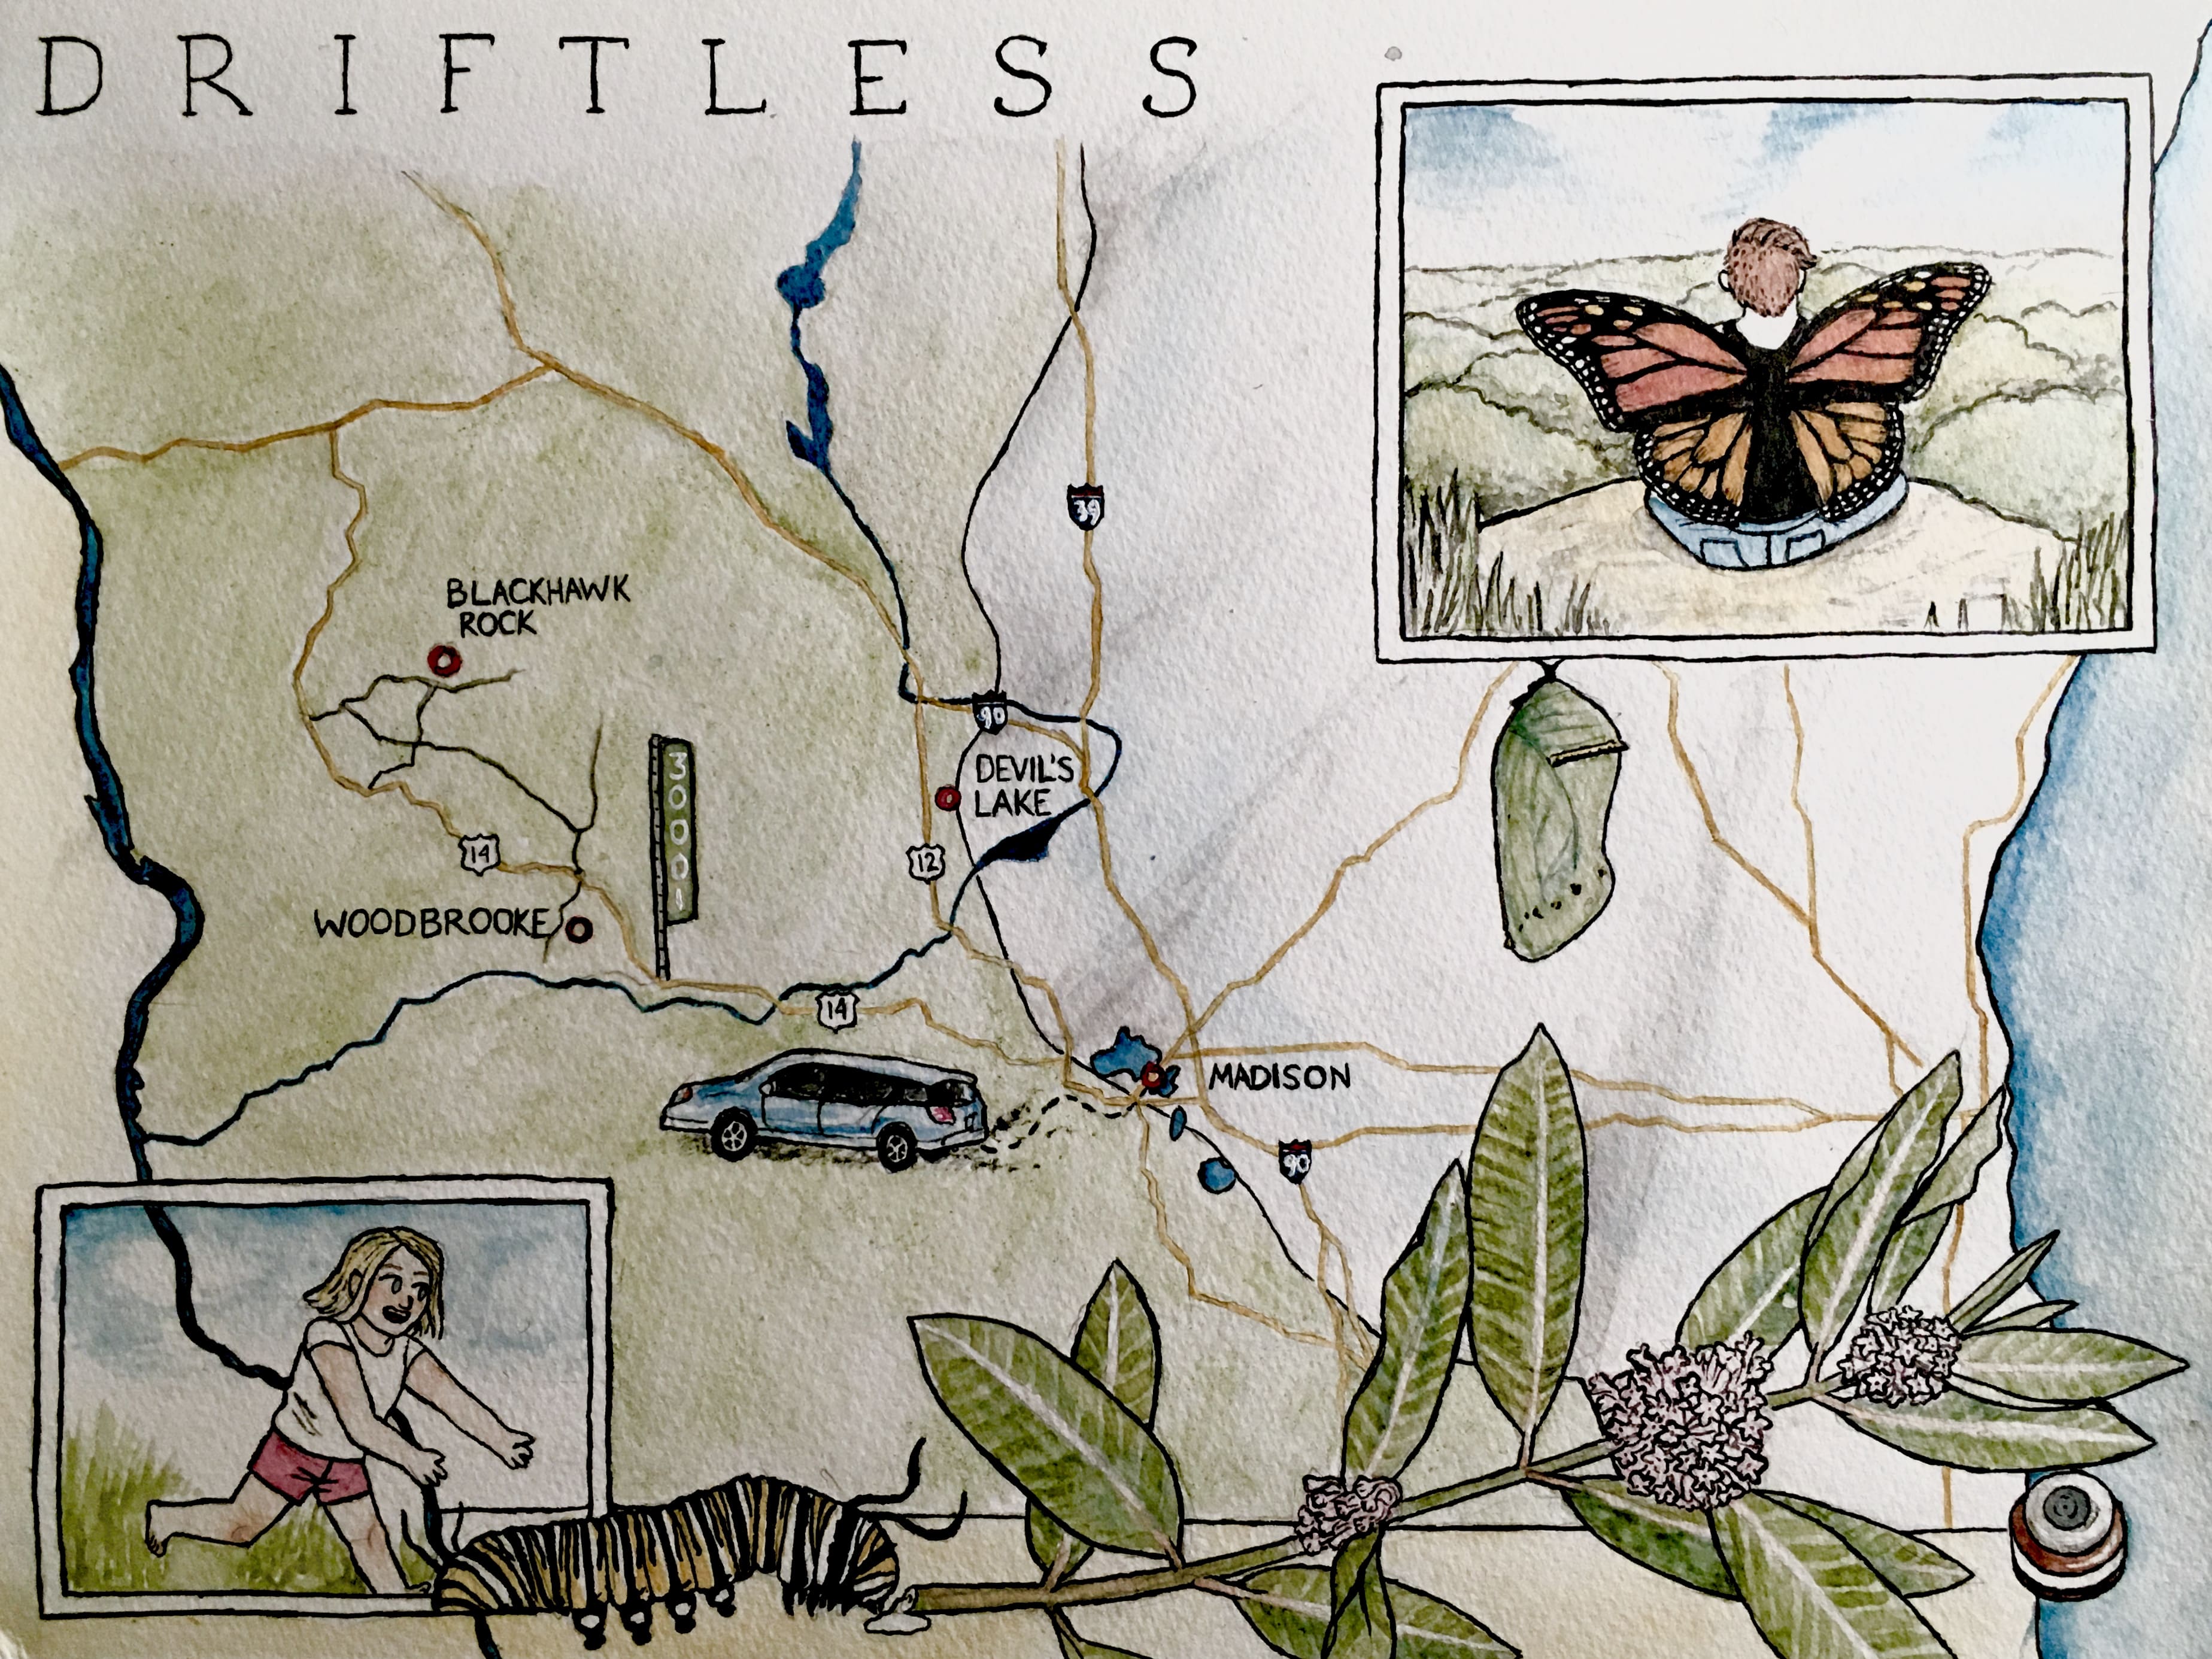 DRIFTLESS
39
BLACKHAWK
ROCK
90
DEVIL'S
LAKE
3
0
0
0
1
14
12
WOODBROOKE
14
MADISON
90